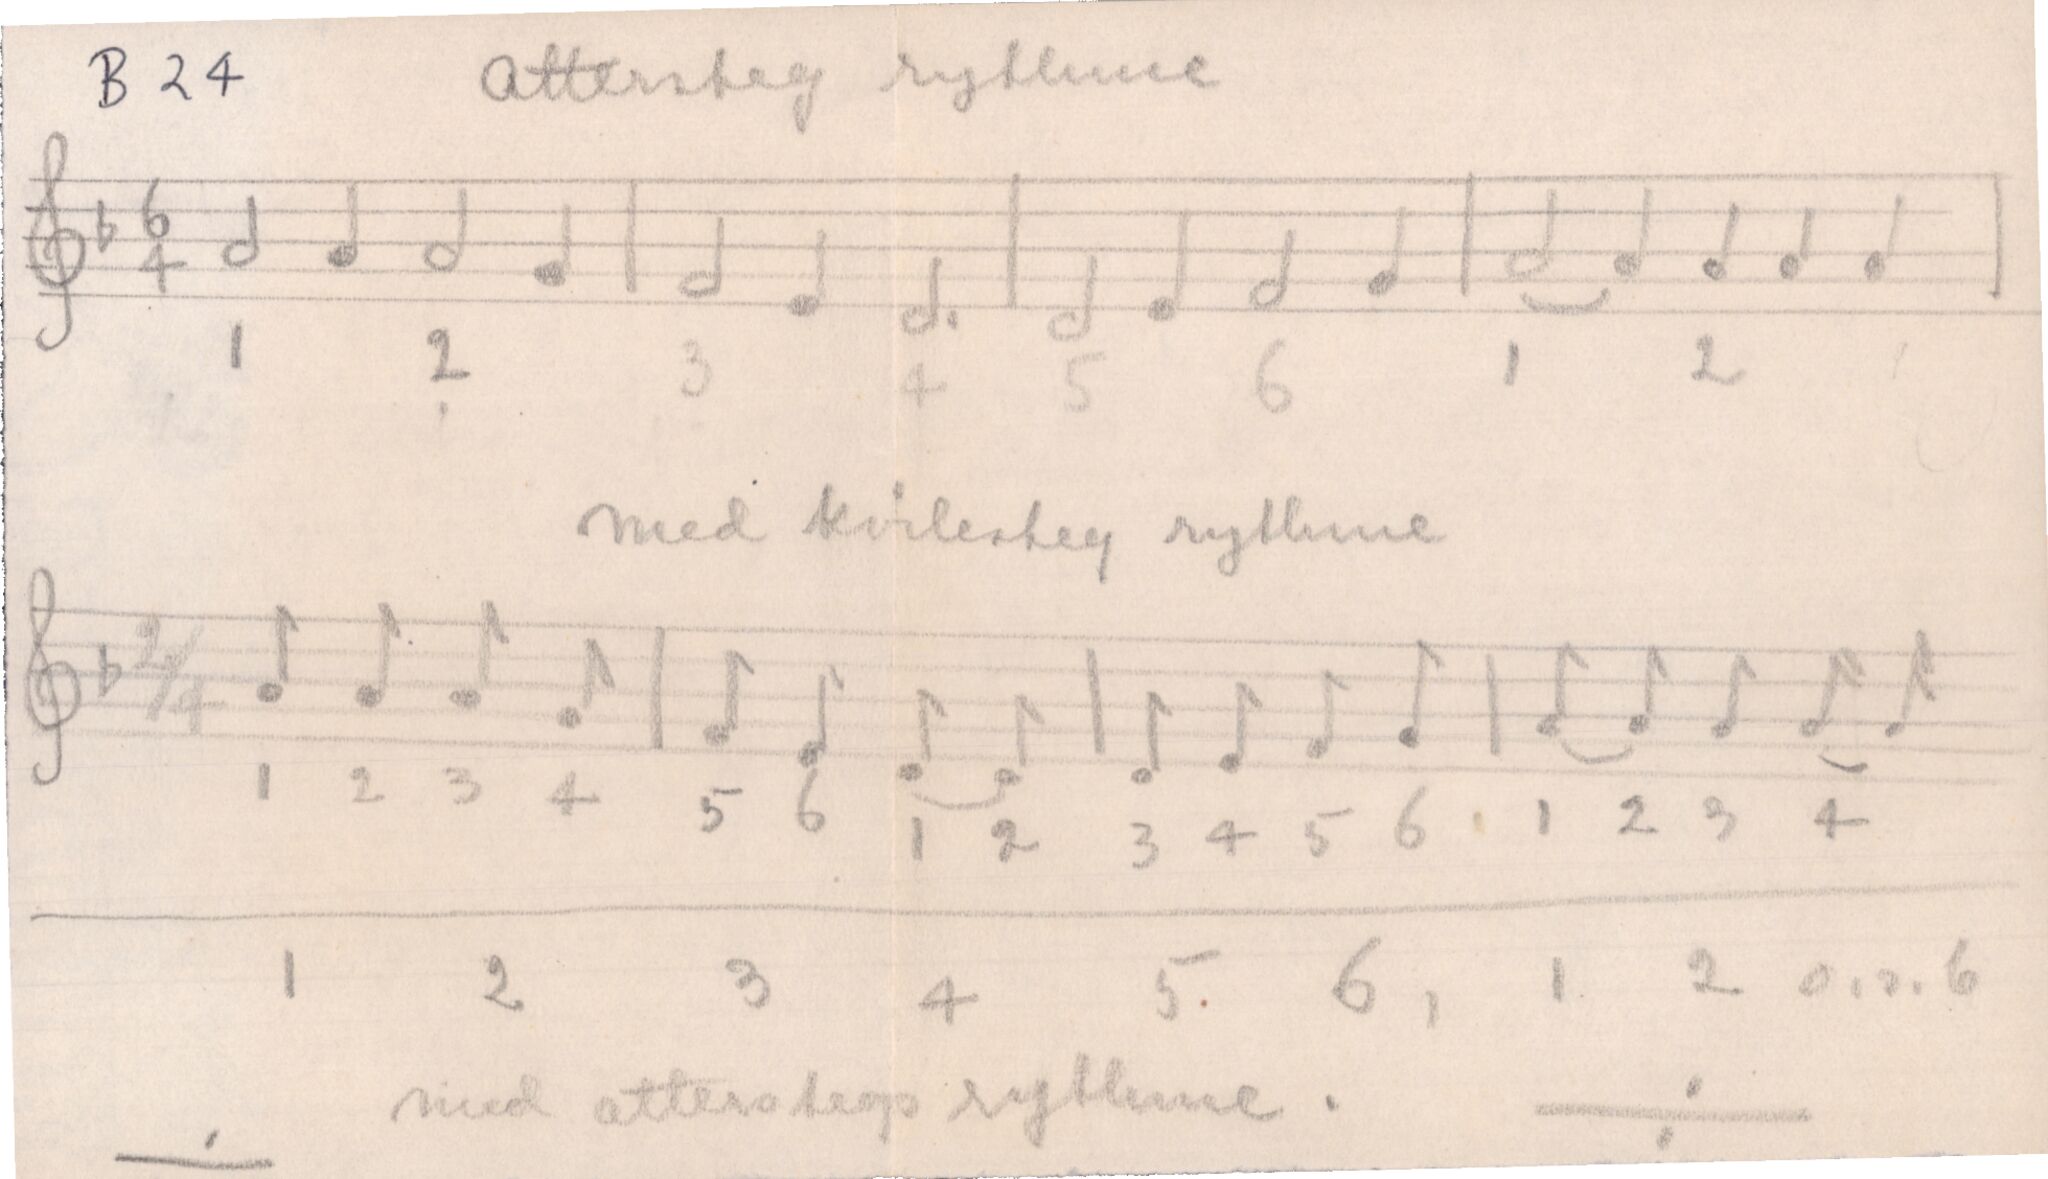 B 24 attersteg rythme
6
4
1 2 3 4 5 6 1 2
med kvilesteg rythme
2/4
1 2 3 4 5 6 1 2 3 4 5 6 1 2 3 4
1 2 3 4 5. 6, 1 2 o.s. 6
med atterstegs rythme.